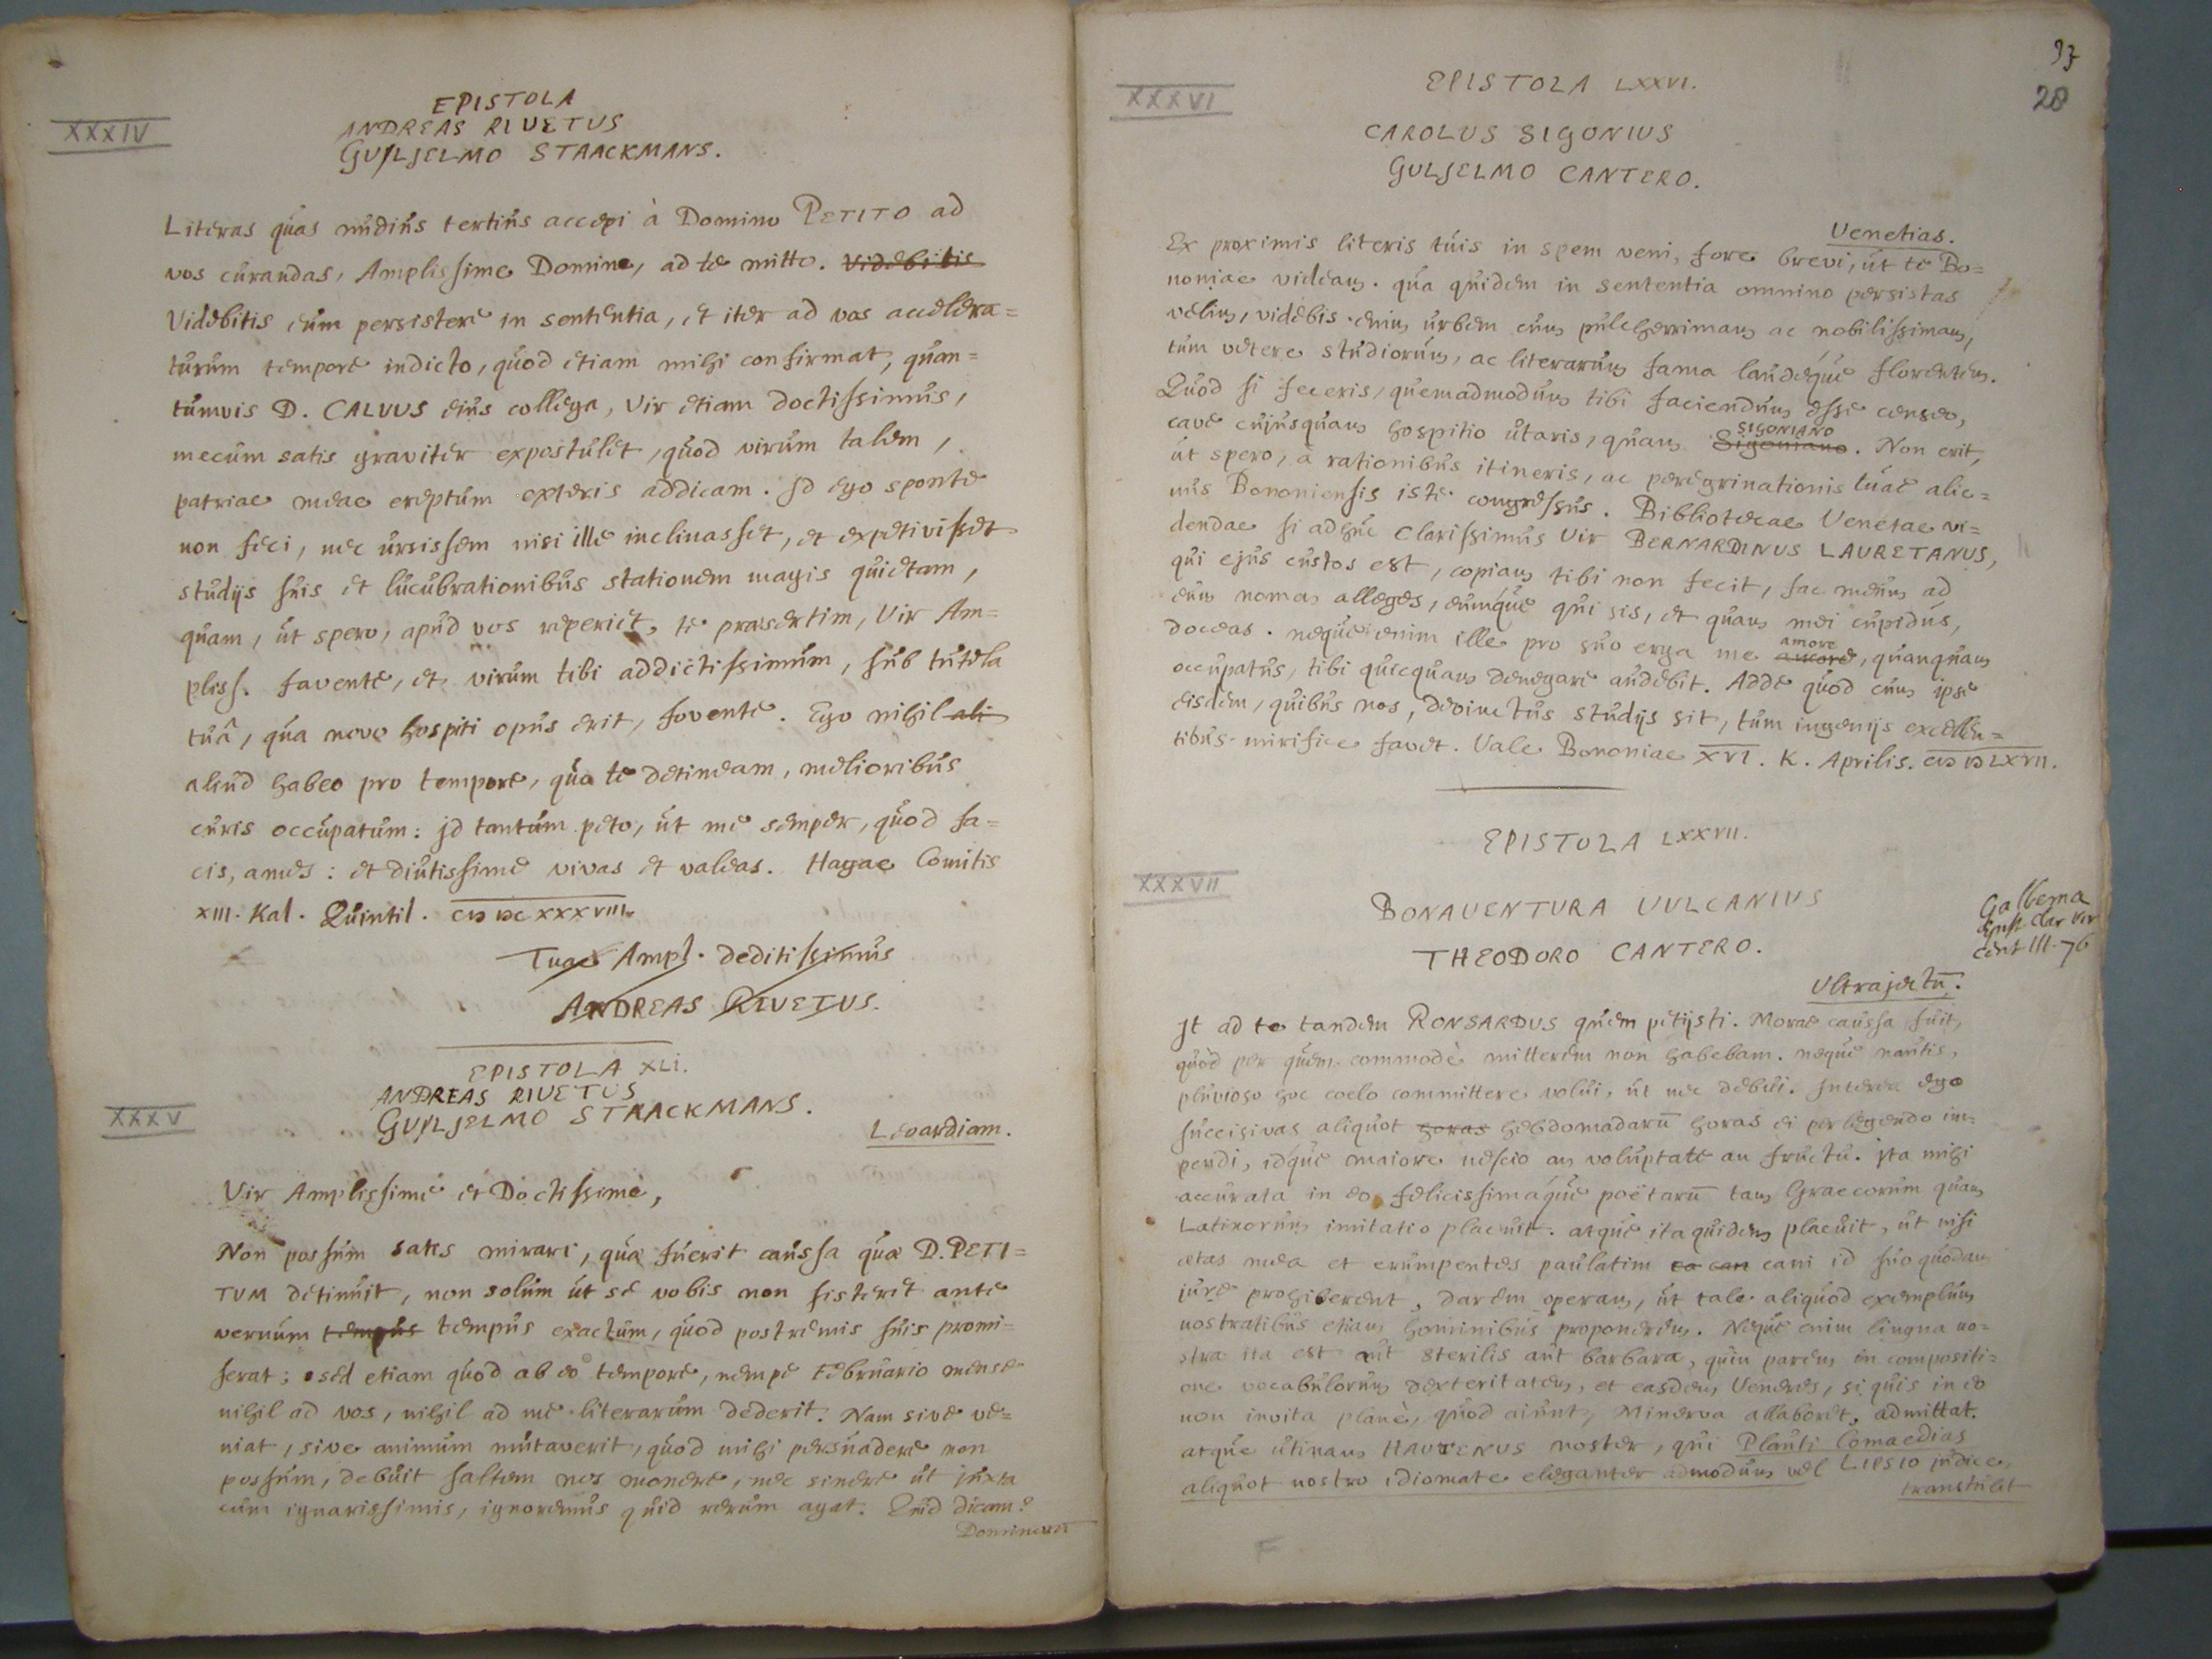 XXXIV
EPISTOLA
ANDREAS RIVETUS
GULJELMO STAACKMANS.
Literas quas nudius tertius accepi à Domino PETITO ad
vos curandas, Amplissime Domine, ad te mitto. Videbitis
Videbitis eum persistere in sententia, et iter ad vos accelera=
turum tempore indicto, quod etiam mihi confirmat, quan=
tumvis D. CALVUS ejus collega, Vir etiam doctissimus,
mecum satis graviter expostulet, quod virum talem,
patriae meae ereptum exteris addicam. Id ego sponte
non feci, nec ursissem nisi ille inclinasset, et expetivisset
studijs suis et lucubrationibus stationem magis quietam,
quam, ut spero, apud vos reperiet, te praesertim, Vir Am=
pliss. favente, et virum tibi addictissimum, sub tutela
tuâ, qua novo hospiti opus erit, fovente. Ego nihil ali
aliud habeo pro tempore, quo te detineam, melioribus
curis occupatum: id tantum peto, ut me semper, quod fa=
cis, ames: et diutissime vivas et valeas. Hagae Comitis
XIII. Kal. Quintil. CIƆ IƆC XXXVIII.
Tuae Ampl. deditissimus
ANDREAS RIVETUS.
EPISTOLA XLI.
XXXV
ANDREAS RIVETUS
GULJELMO STAACKMANS.
Leoardiam.
Vir Amplissime et Doctissime,
Non possum satis mirari, quae fuerit caussa quae D. PETI=
TUM detinuit, non solum ut se vobis non sisteret ante
vernum tempus tempus exactum, quod postremis suis promi=
serat; sed etiam quod ab eo tempore, nempe Februario mense
nihil ad vos, nihil ad me literarum dederit. Nam sive ve=
niat, sive animum mutaverit, quod mihi persuadere non
possum, debuit saltem nos monere, nec sinere ut juxta
cum ignarissimis, ignoremus quid rerum agat. Quid dicam?
37
28
XXXVI
EPISTOLA LXXVI.
CAROLUS SIGONIUS
GULJELMO CANTERO.
Venetias.
Ex proximis literis tuis in spem veni, fore brevi, ut te Bo=
noniae videam. qua quidem in sententia omnino persistas
velim, videbis enim urbem cum pulcherrimam ac nobilissimam,
tum vetere studiorum, ac literarum fama laudeque florentem.
Quod si feceris, quemadmodum tibi faciendum esse censeo,
cave cujusquam hospitio utaris, quam Sigoniano SIGONIANO. Non erit,
ut spero, à rationibus itineris, ac peregrinationis tuae alie=
nus Bononiensis iste congressus. Bibliotecae Venetae vi=
dendae si adhuc Clarissimus Vir BERNARDINUS LAURETANUS,
qui ejus custos est, copiam tibi non fecit, fac meum ad
eum nomen alleges, eumque qui sis, et quam mei cupidus,
doceas. neque enim ille pro suo erga me amore, quanquam
occupatus, tibi quicquam denegare audebit. Adde quod cum ipse
eisdem, quibus nos, devinctus studijs sit, tum ingenijs excellen=
tibus mirifice favet. Vale Bononiae XVI. K. Aprilis. CIƆ IƆ LXVII.
EPISTOLA LXXVII.
XXXVII
BONAVENTURA VULCANIUS
THEODORO CANTERO.
Gabbema
Epist Clar Vir
Cent III. 76
Ultrajectū.
It ad te tandem RONSARDUS quem petijsti. Morae caussa fuit,
quòd per quem commodè mitterem non habebam. neque nautis,
pluvioso hoc coelo committere volui, ut nec debui. Interea ego
succisivas aliquot horas hebdomadarū horas ei perlegendo im=
pendi, idque maiore nescio an voluptate an fructu. Ita mihi
accurata in eo felicissimaque poëtarū tam Graecorum quam
Latinorum imitatio placuit. atque ita quidem placuit, ut nisi
aetas mea et erumpentes paulatim ea can cani id suo quodam
jure prohiberent, darem operam, ut tale aliquod exemplum
nostratibus etiam hominibus proponerem. Neque enim lingua no=
stra ita est aut sterilis aut barbara, quin parem in compositi=
one vocabulorum dexteritatem, et easdem Veneres, si quis in eo
non invita planè, quod aiunt, Minerva allaboret, admittat.
atque utinam HAUTENUS noster, qui Plauti Comaedias
aliquot nostro idiomate eleganter admodum vel LIPSIO judice,
transtulit